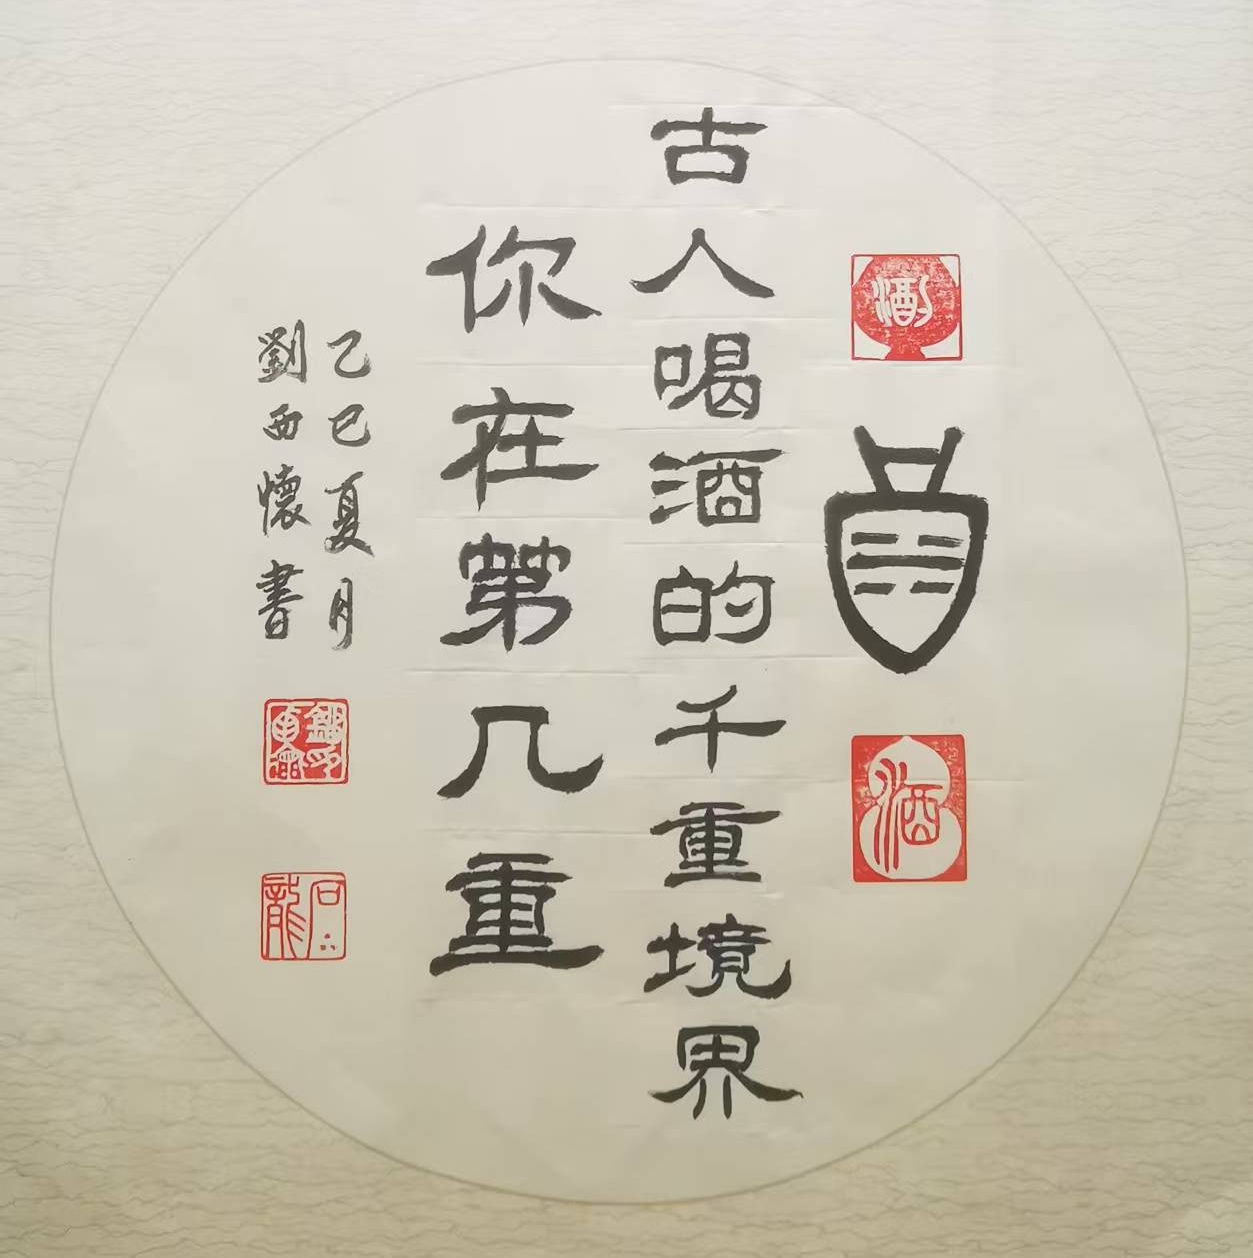 酒
酉
酒
古人喝酒的千重境界
你在第几重
乙巳夏月
劉西懷書